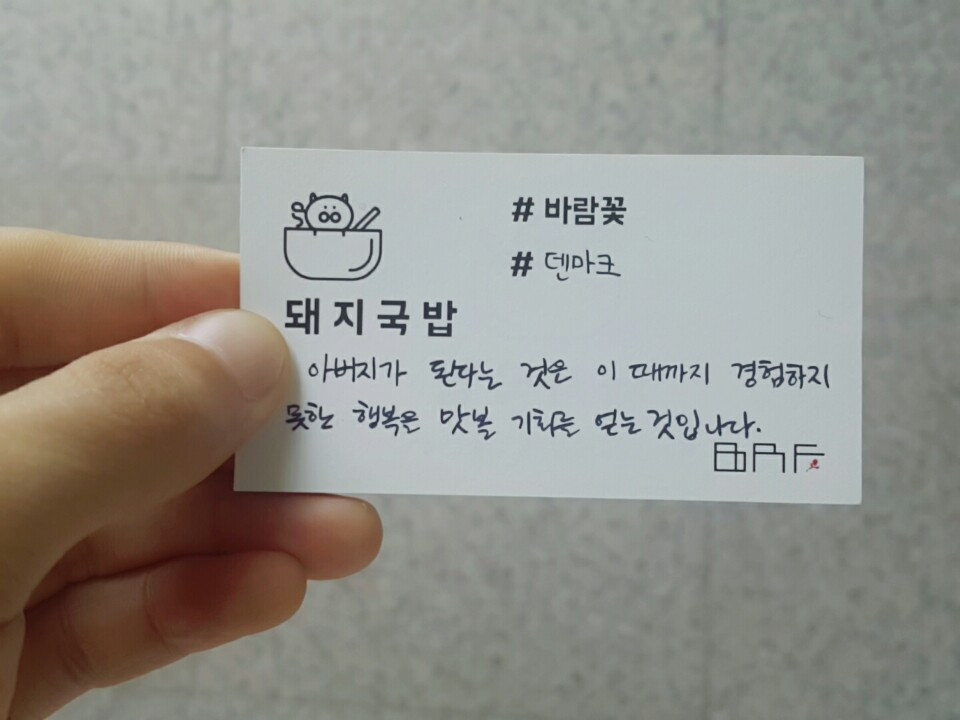 # 바람꽃
# 덴마크
돼지국밥
아버지가 된다는 것은 이 때까지 경험하지
못한 행복을 맛볼 기회를 얻는것입니다.
BAF